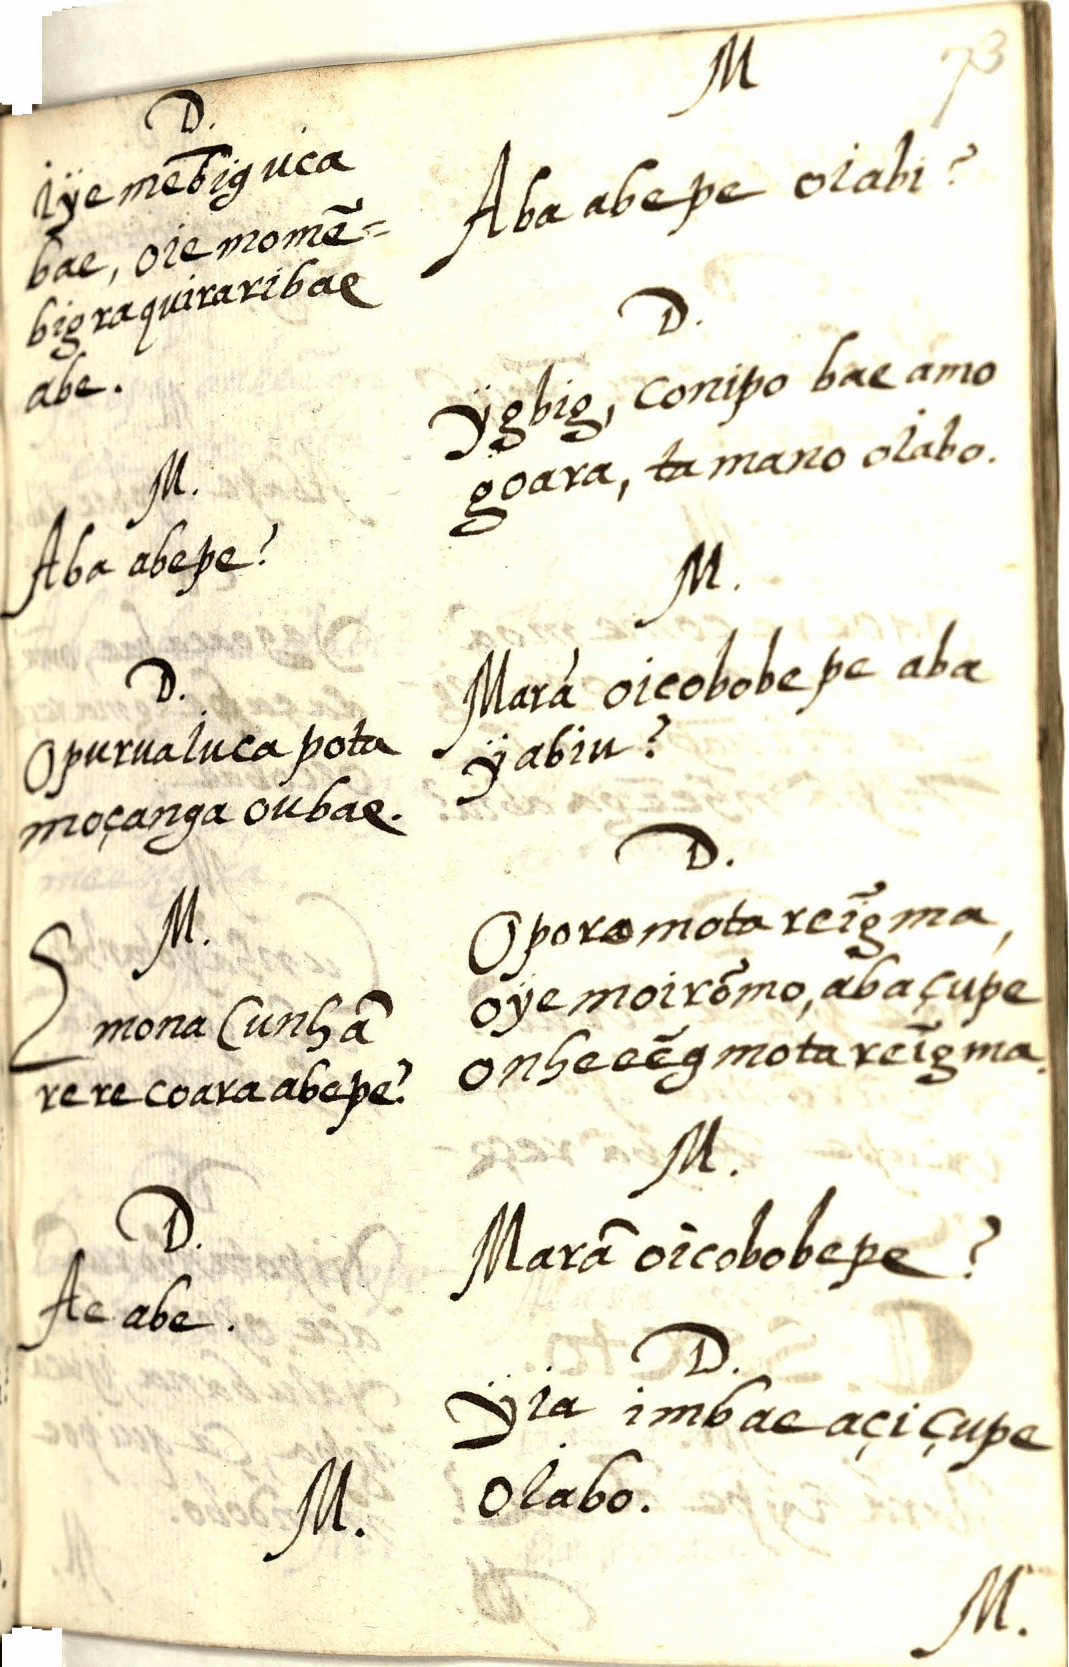 D.
iÿe mebĩg uca
bae, oie momẽ=
bigraquiraribae
abe.
M.
Aba abepe?
D.
Opuruaiuca pota
moçanga oubae.
M.
Emona Cunhã
rerecoara abepe?
D.
Ae abe.
M.
73
M
Aba abepe oiabi?
D.
ÿgbig, conipo bae amo
goara, ta mano oiabo.
M.
Marã oicobobepe aba
ÿabiu?
D.
Oporamotareĩgma,
oÿe moirõmo, aba çupe
onheeẽg motareĩgma.
M.
Marã oicobobepe?
D.
ÿia imbae açi çupe
oiabo.
M.